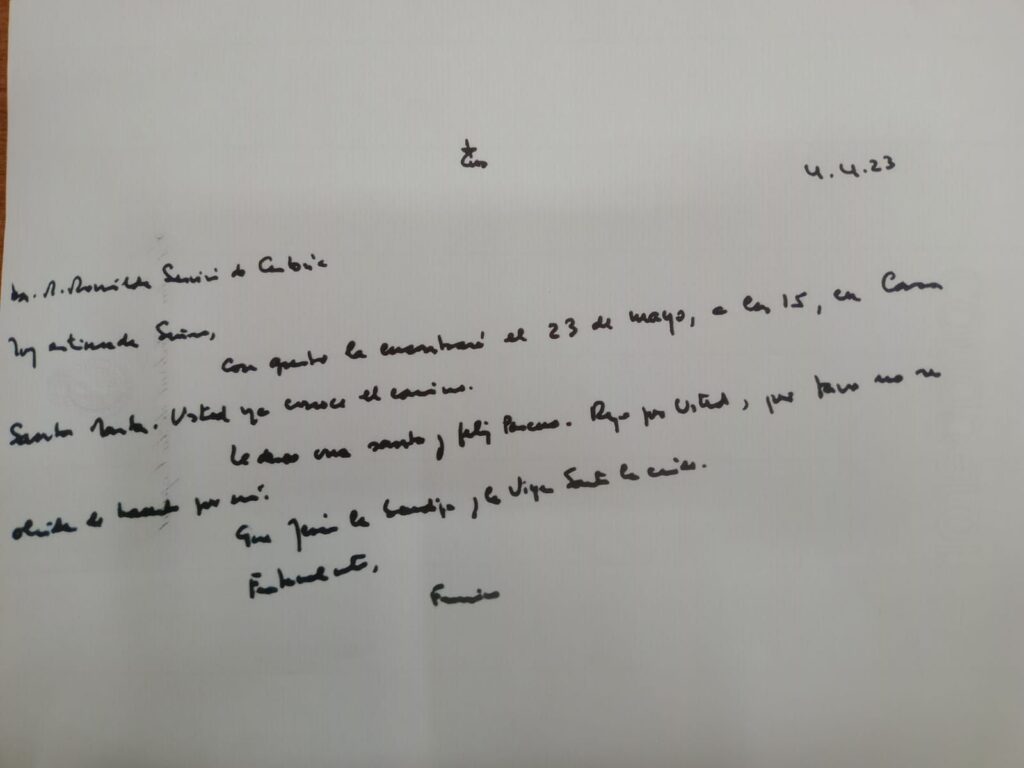 4.4.23
Dra. M. Romilda Servini de Cubría
Muy estimada Señora,
con gusto la encontraré el 23 de mayo, a las 15, en Casa
Santa Marta. Usted ya conoce el camino.
Le deseo una santa y feliz Pascua. Rezo por Usted, por favor no se
olvide de hacerlo por mí.
Que Jesús la bendiga y la Virgen Santa la cuide.
Fraternalmente,
Francisco